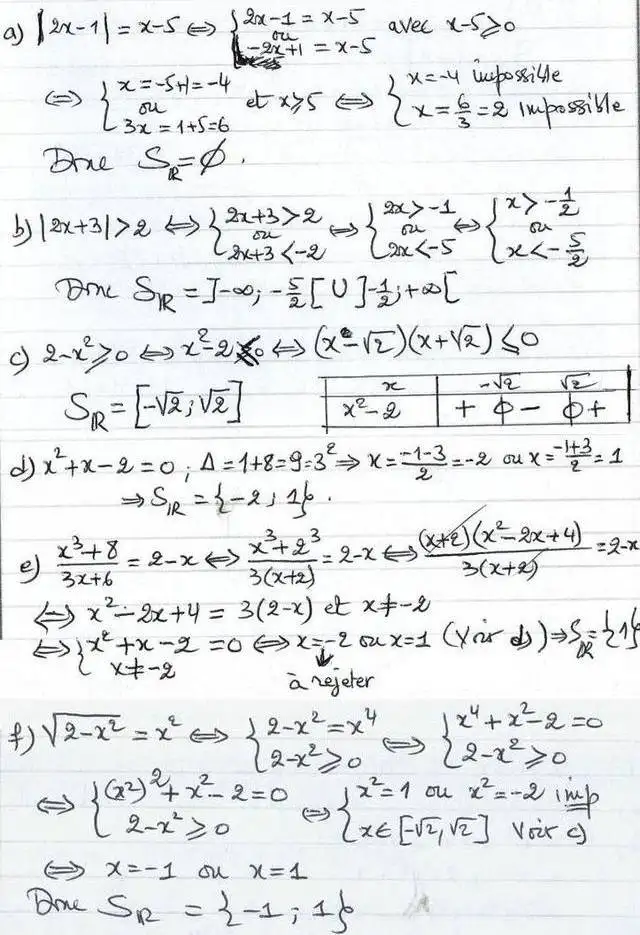 a) |2x-1| = x-5 ⇔ { 2x-1 = x-5 ou -2x+1 = x-5 avec x-5 ≥ 0
⇔ { x = -5+1 = -4 ou 3x = 1+5 = 6 et x ≥ 5 ⇔ { x = -4 impossible x = 6/3 = 2 impossible
Donc S_ℝ = ∅.
b) |2x+3| > 2 ⇔ { 2x+3 > 2 ou 2x+3 < -2 ⇔ { 2x > -1 ou 2x < -5 ⇔ { x > -1/2 ou x < -5/2
Donc S_ℝ = ]-∞; -5/2[ U ]-1/2; +∞[
c) 2-x² ≥ 0 ⇔ x²-2 ≤ 0 ⇔ (x-√2)(x+√2) ≤ 0
S_ℝ = [-√2; √2]
x -√2 √2
x²-2 + 0 - 0 +
d) x²+x-2 = 0 ; Δ = 1+8 = 9 = 3² ⇒ x = (-1-3)/2 = -2 ou x = (-1+3)/2 = 1
⇒ S_ℝ = {-2; 1}.
e) (x³+8)/(3x+6) = 2-x ⇔ (x³+2³)/(3(x+2)) = 2-x ⇔ ((x+2)(x²-2x+4))/(3(x+2)) = 2-x
⇔ x²-2x+4 = 3(2-x) et x ≠ -2
⇔ { x²+x-2 = 0 x ≠ -2 ⇔ x = -2 ou x = 1 (Voir d) ⇒ S_ℝ = {1}
à rejeter
f) √(2-x²) = x² ⇔ { 2-x² = x⁴ 2-x² ≥ 0 ⇔ { x⁴+x²-2 = 0 2-x² ≥ 0
⇔ { (x²)²+x²-2 = 0 2-x² ≥ 0 ⇔ { x² = 1 ou x² = -2 imp x ∈ [-√2, √2] Voir c)
⇔ x = -1 ou x = 1
Donc S_ℝ = {-1; 1}